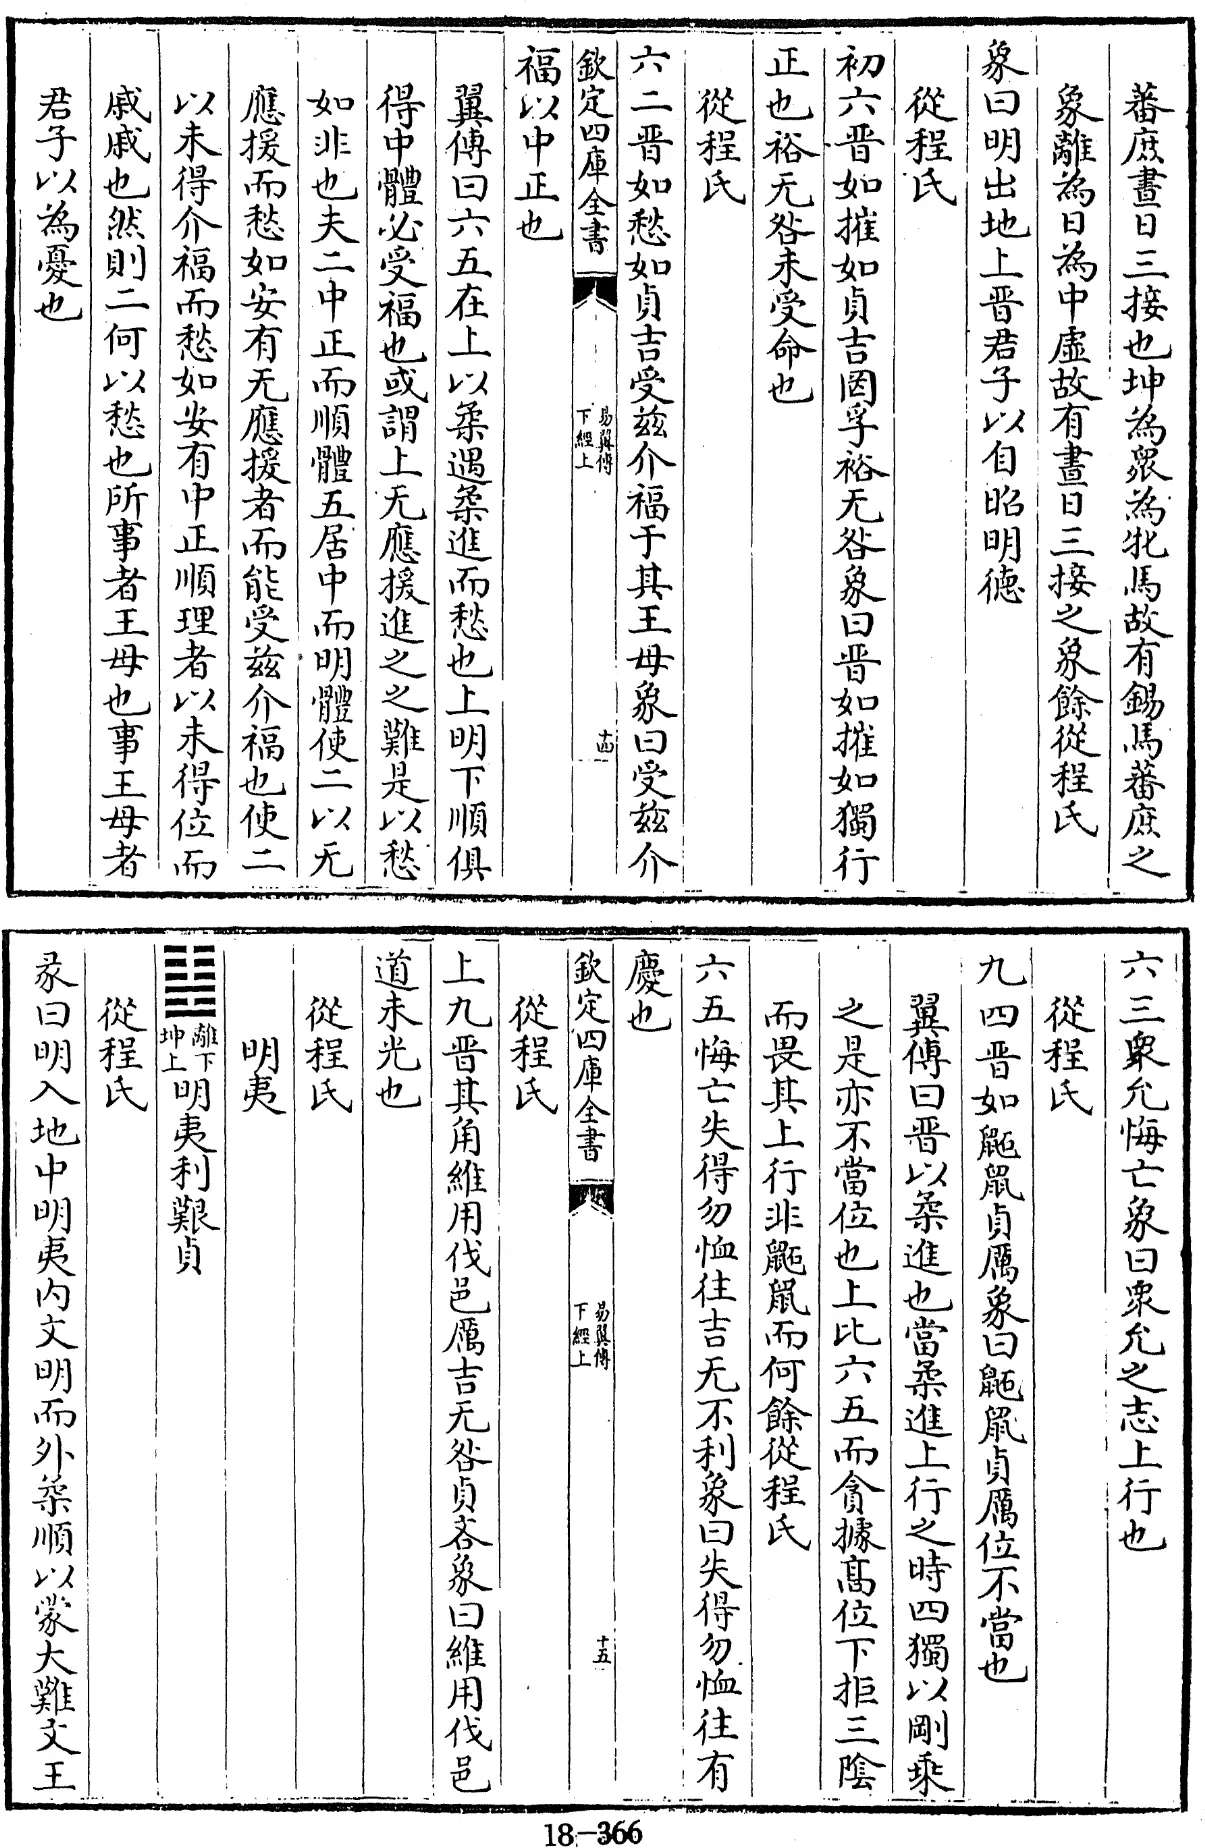 蕃庶晝日三接也坤為衆為牝馬故有錫馬蕃庶之
象離為日為中虛故有晝日三接之象餘從程氏
象曰明出地上晉君子以自昭明德
從程氏
初六晉如摧如貞吉罔孚裕无咎象曰晉如摧如獨行
正也裕无咎未受命也
從程氏
六二晉如愁如貞吉受兹介福于其王母象曰受兹介
欽定四庫全書
易翼傳
下經上
十四
福以中正也
翼傳曰六五在上以柔遇柔進而愁也上明下順俱
得中體必受福也或謂上无應援進之之難是以愁
如非也夫二中正而順體五居中而明體使二以无
應援而愁如安有无應援者而能受兹介福也使二
以未得介福而愁如安有中正順理者以未得位而
戚戚也然則二何以愁也所事者王母也事王母者
君子以為憂也
六三衆允悔亡象曰衆允之志上行也
從程氏
九四晉如鼫鼠貞厲象曰鼫鼠貞厲位不當也
翼傳曰晉以柔進也當柔進上行之時四獨以剛乘
之是亦不當位也上比六五而貪據高位下拒三陰
而畏其上行非鼫鼠而何餘從程氏
六五悔亡失得勿恤往吉无不利象曰失得勿恤往有
慶也
欽定四庫全書
易翼傳
下經上
十五
從程氏
上九晉其角維用伐邑厲吉无咎貞吝象曰維用伐邑
道未光也
從程氏
明夷
離下
坤上
明夷利艱貞
從程氏
彖曰明入地中明夷内文明而外柔順以蒙大難文王
18-366